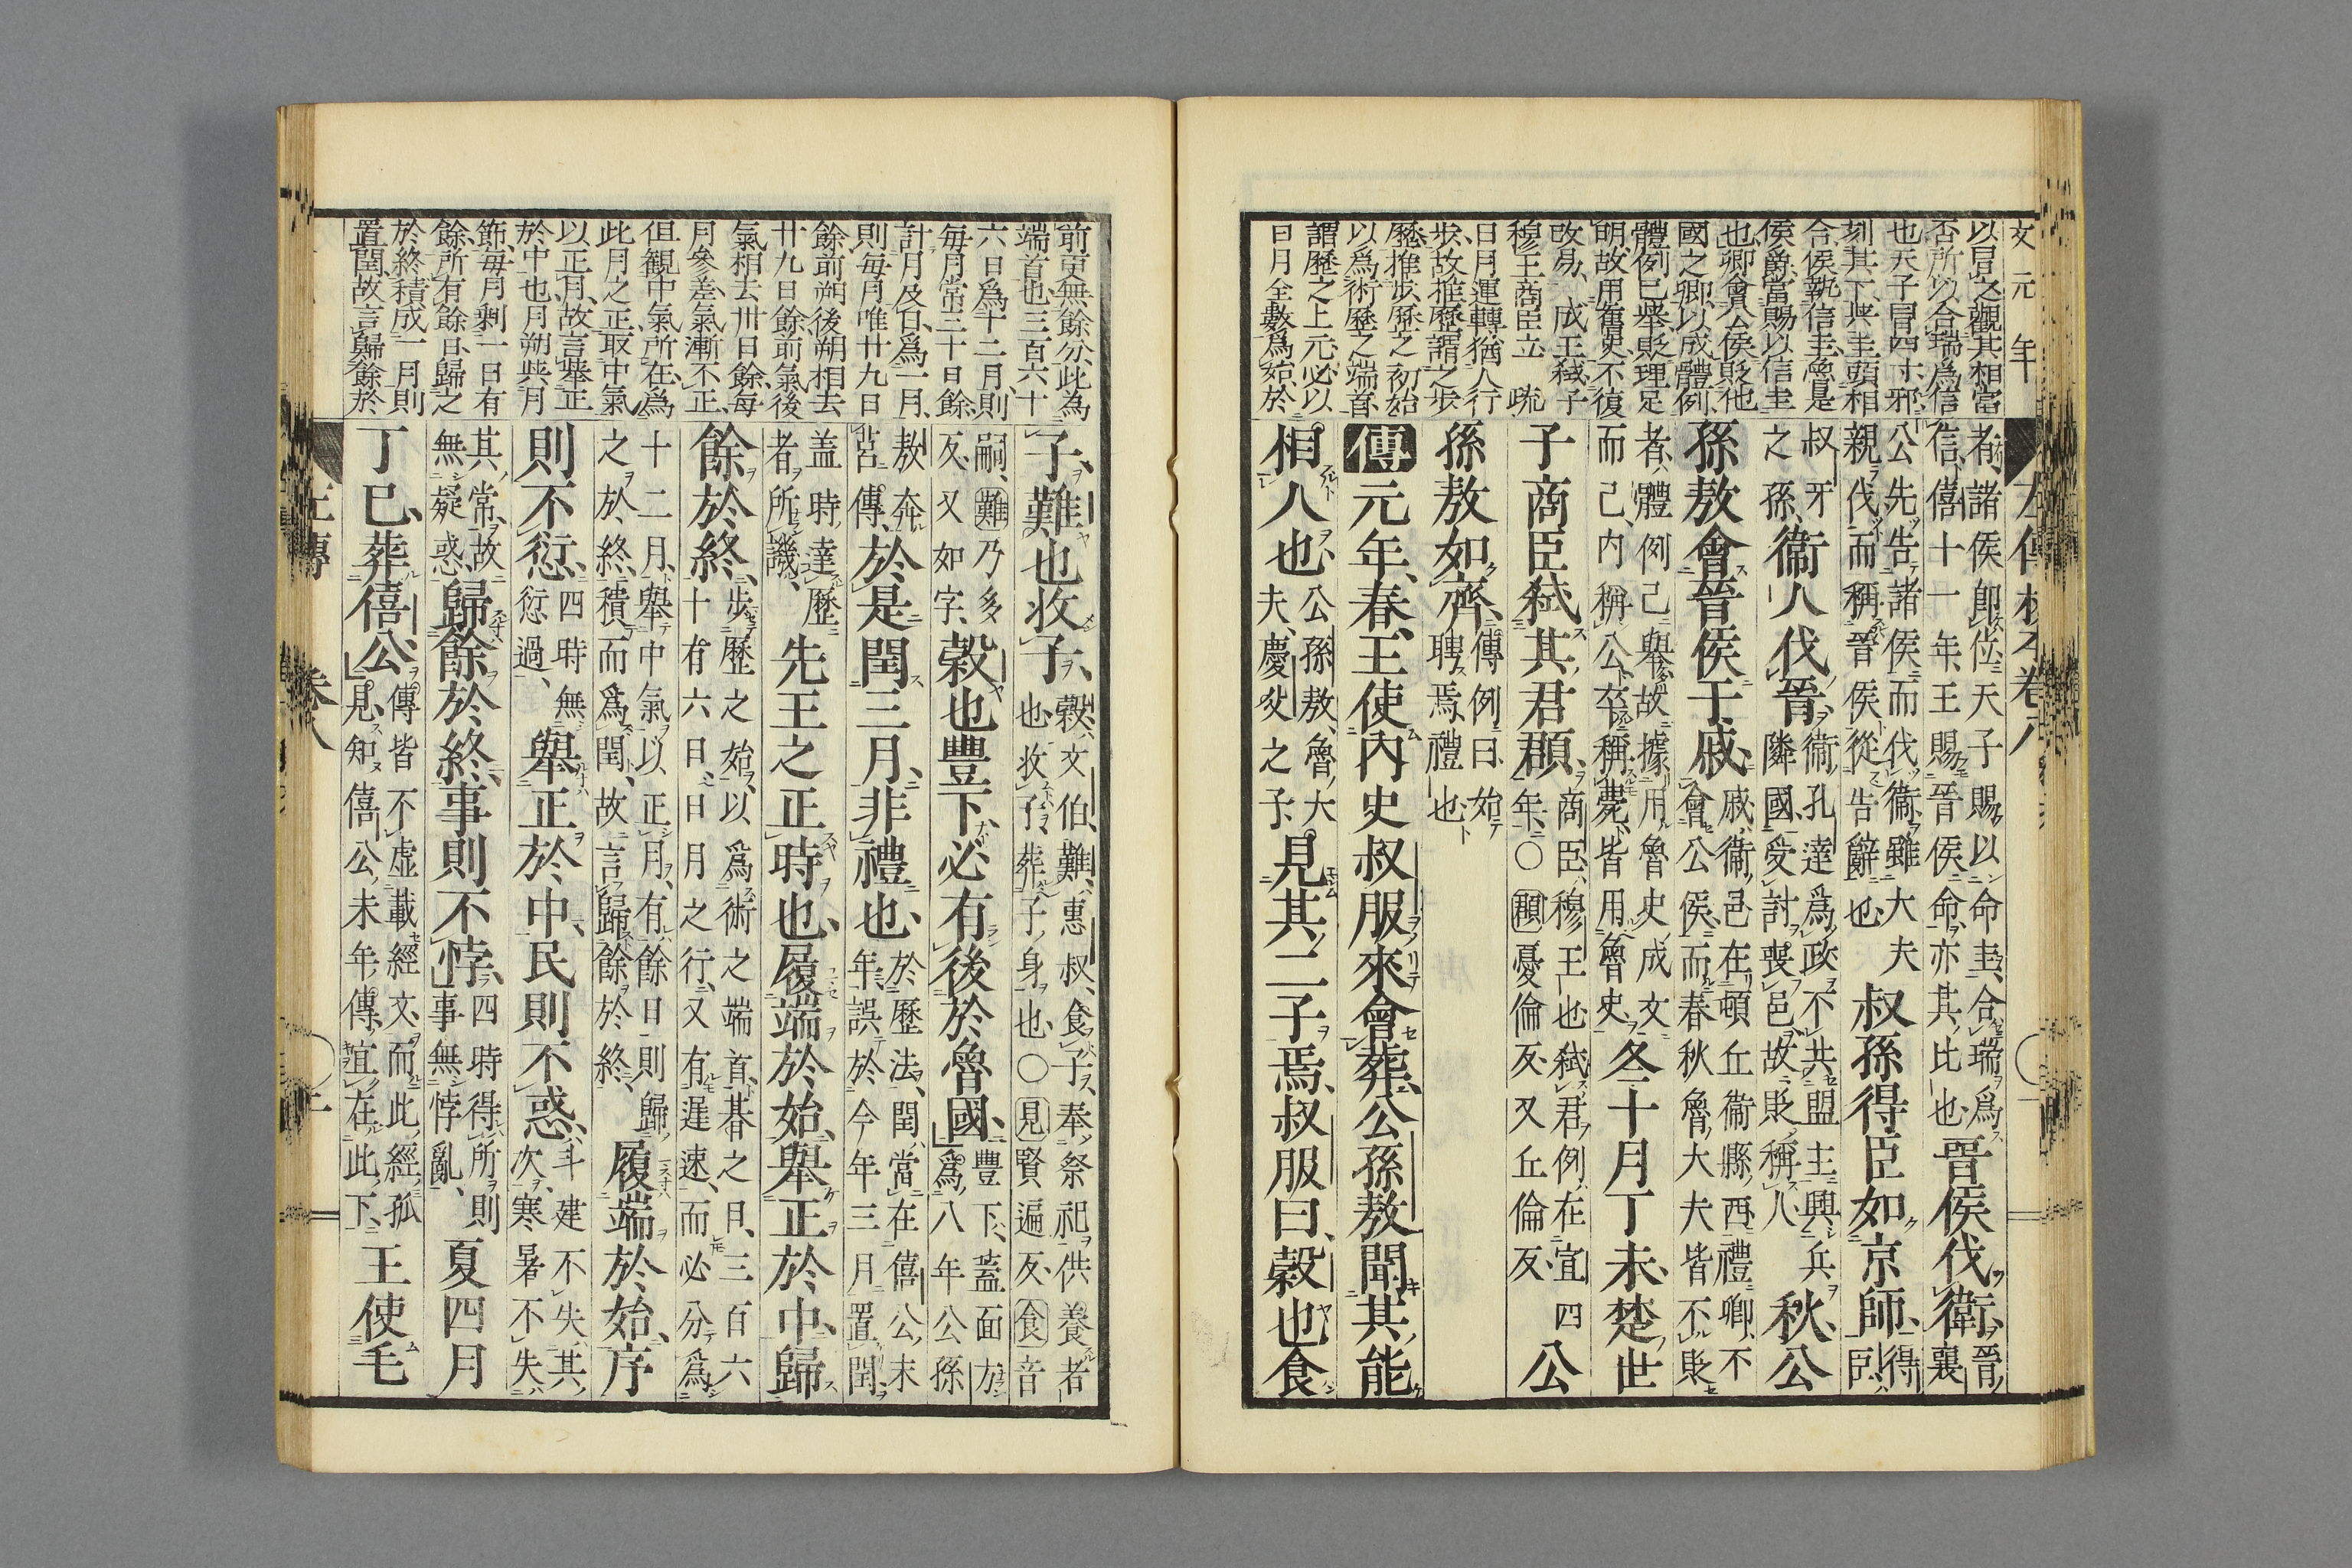 文元年
以冒之觀其相當
否所以合瑞爲信
也天子冒四寸邪
刻其下與圭頭相
合侯執信圭魯是
侯爵當賜以信圭
也卿會公侯貶他
國之卿以成體例
體例已舉貶理足
明故用舊史不復
改易 成王弑子
穆王商臣立 疏
日月運轉猶人行
步故推歷謂之步
歷推步歷之初始
以爲術歷之端首
謂歷之上元必以
日月全數爲始於
左傳校本卷八
者諸侯即位天子賜以命圭合瑞爲
信僖十一年王賜晉侯命亦其比也
晉侯伐衞
晉襄
公先告諸侯而伐衞雖大夫
親伐而稱晉侯從告辭也
叔孫得臣如京師
得臣
叔牙
之孫
衞人伐晉
衞孔達爲政不共盟主興兵
隣國受討喪邑故貶稱人
秋公
孫敖會晉侯于戚
戚衞邑在頓丘衞縣西禮卿不
會公侯而春秋魯大夫皆不貶
者體例已舉故據用魯史成文
而已內稱公卒稱薨皆用魯史
冬十月丁未楚世
子商臣弑其君頵
商臣穆王也弑君例在宣四
年○頵憂倫反又丘倫反
公
孫敖如齊
傳例曰始
聘焉禮也
傳元年春王使內史叔服來會葬公孫敖聞其能
相人也
公孫敖魯大
夫慶父之子
見其二子焉叔服曰穀也食
前更無餘分此爲
端首也三百六十
六日爲十二月則
每月常三十日餘
計月及日爲一月
則每月唯廿九日
餘前朔後朔相去
廿九日餘前氣後
氣相去卅日餘每
月參差氣漸不正
但觀中氣所在爲
此月之正取中氣
以正月故言舉正
於中也月朔與月
節每月剩一日有
餘所有餘日歸之
於終積成一月則
置閏故言歸餘於
子難也收子
穀文伯難惠叔食子奉祭祀供養者
也收子葬子身也○見賢遍反食音
嗣難乃多
反又如字
穀也豐下必有後於魯國
豐下蓋面方
爲八年公孫
敖奔
莒傳
於是閏三月非禮也
於歷法閏當在僖公末
年誤於今年三月置閏
蓋時達歷
者所譏
先王之正時也履端於始舉正於中歸
餘於終
步歷之始以爲術之端首朞之日三百六
十有六日日月之行又有遲速而必分爲
十二月舉中氣以正月有餘日則歸
之於終積而爲閏故言歸餘於終
履端於始序
則不愆
四時無
愆過
舉正於中民則不惑
斗建不失其
次寒暑不失
其常故
無疑惑
歸餘於終事則不悖
四時得所則
事無悖亂
夏四月
丁巳葬僖公
傳皆不虛載經文而此經孤
見知僖公末年傳宜在此下
王使毛